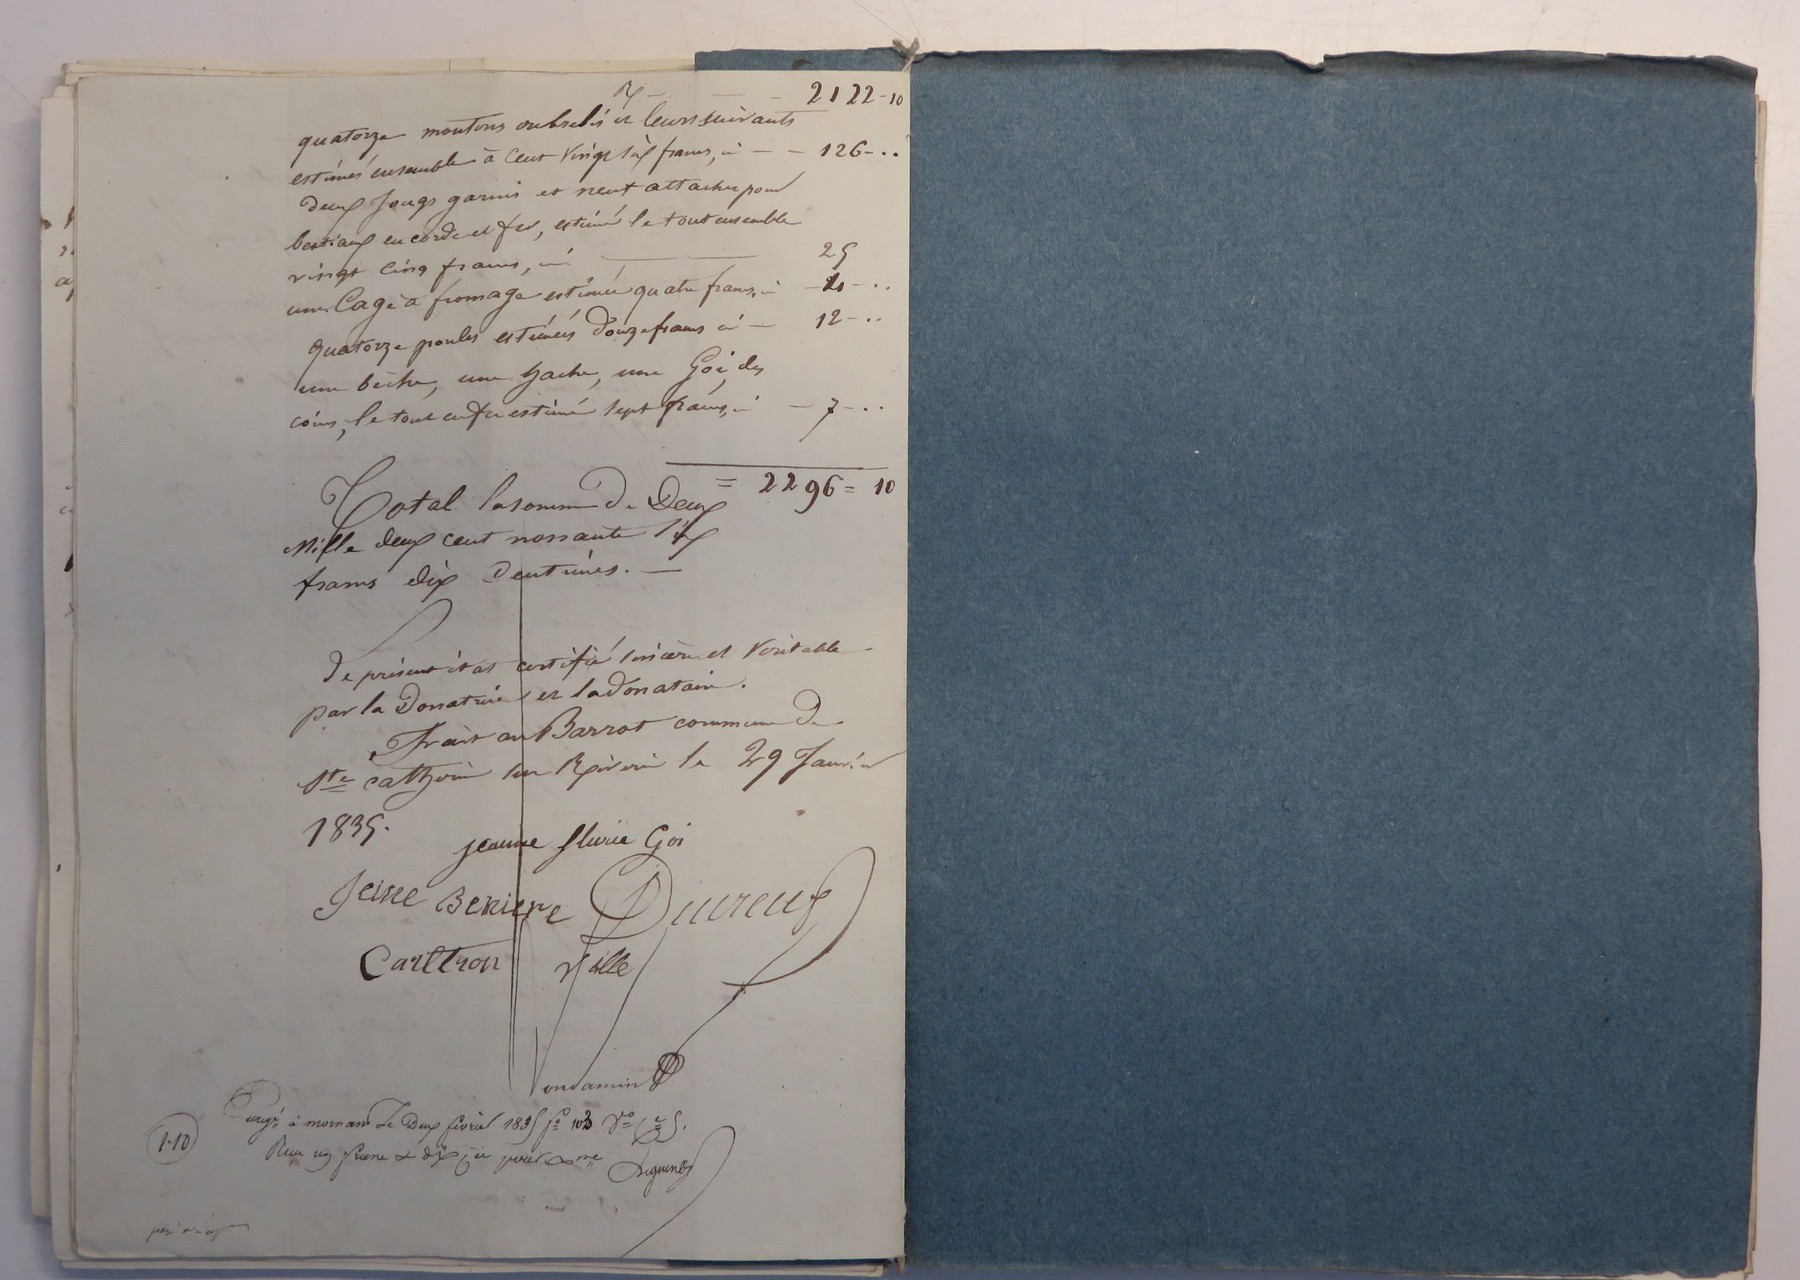 R – – – 2122-10
quatorze moutons ou brebis et leurs suivants
estimés ensemble à cent vingt six francs, ci – – 126-..
deux jougs garnis et neuf attaches pour
bestiaux en corde et fer, estimé le tout ensemble
vingt cinq francs, ci 25
une Cage à fromage estimée quatre francs, ci – 4 – ..
quatorze poules estimées douze francs ci – 12 – ..
une bèche, une hache, une Goi, des
coins, le tout en fer estimé sept francs, ci – 7 – ..
= 2296 = 10
Total la somme de Deux
Mille deux cent nonante six
francs dix Centimes. –
Le présent état certifié sincère et Véritable
par la Donatrice et la donataire.
Fait au Barrot commune de
Ste catherine sur Riverie le 29 Janvier
1835.
jeanne fleurie Goi
Jeine BENIERE Dureux
Carltron Ville
Vondamin
à mornant Le Deux février 1835 fo 103 Vo Ce 5.
1-10
Reçu un franc & dix c